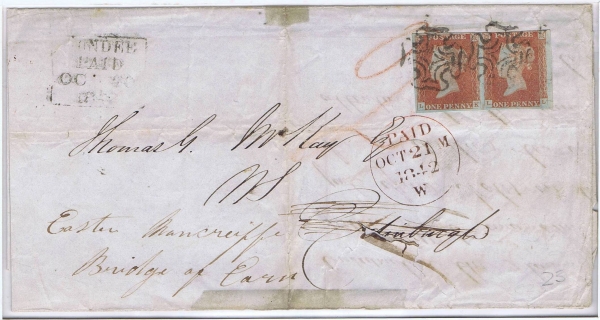 DUNDEE
PAID
OCT 20
POSTAGE POSTAGE
ONE PENNY ONE PENNY
PAID
OCT 21 M
1842
W
Thomas G. McKay Esq
WS
Edinburgh
Easter Moncreiffe
Bridge of Earn
25